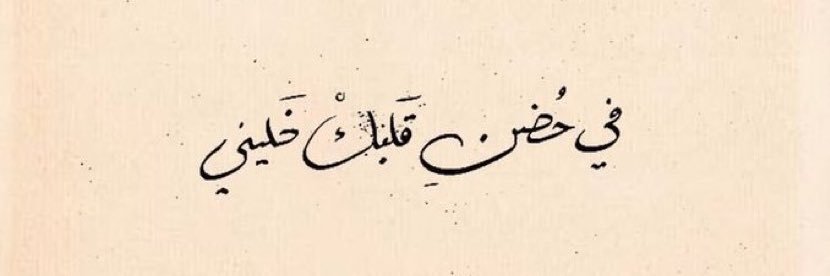 في حُضنِ قَلبكْ خَليني